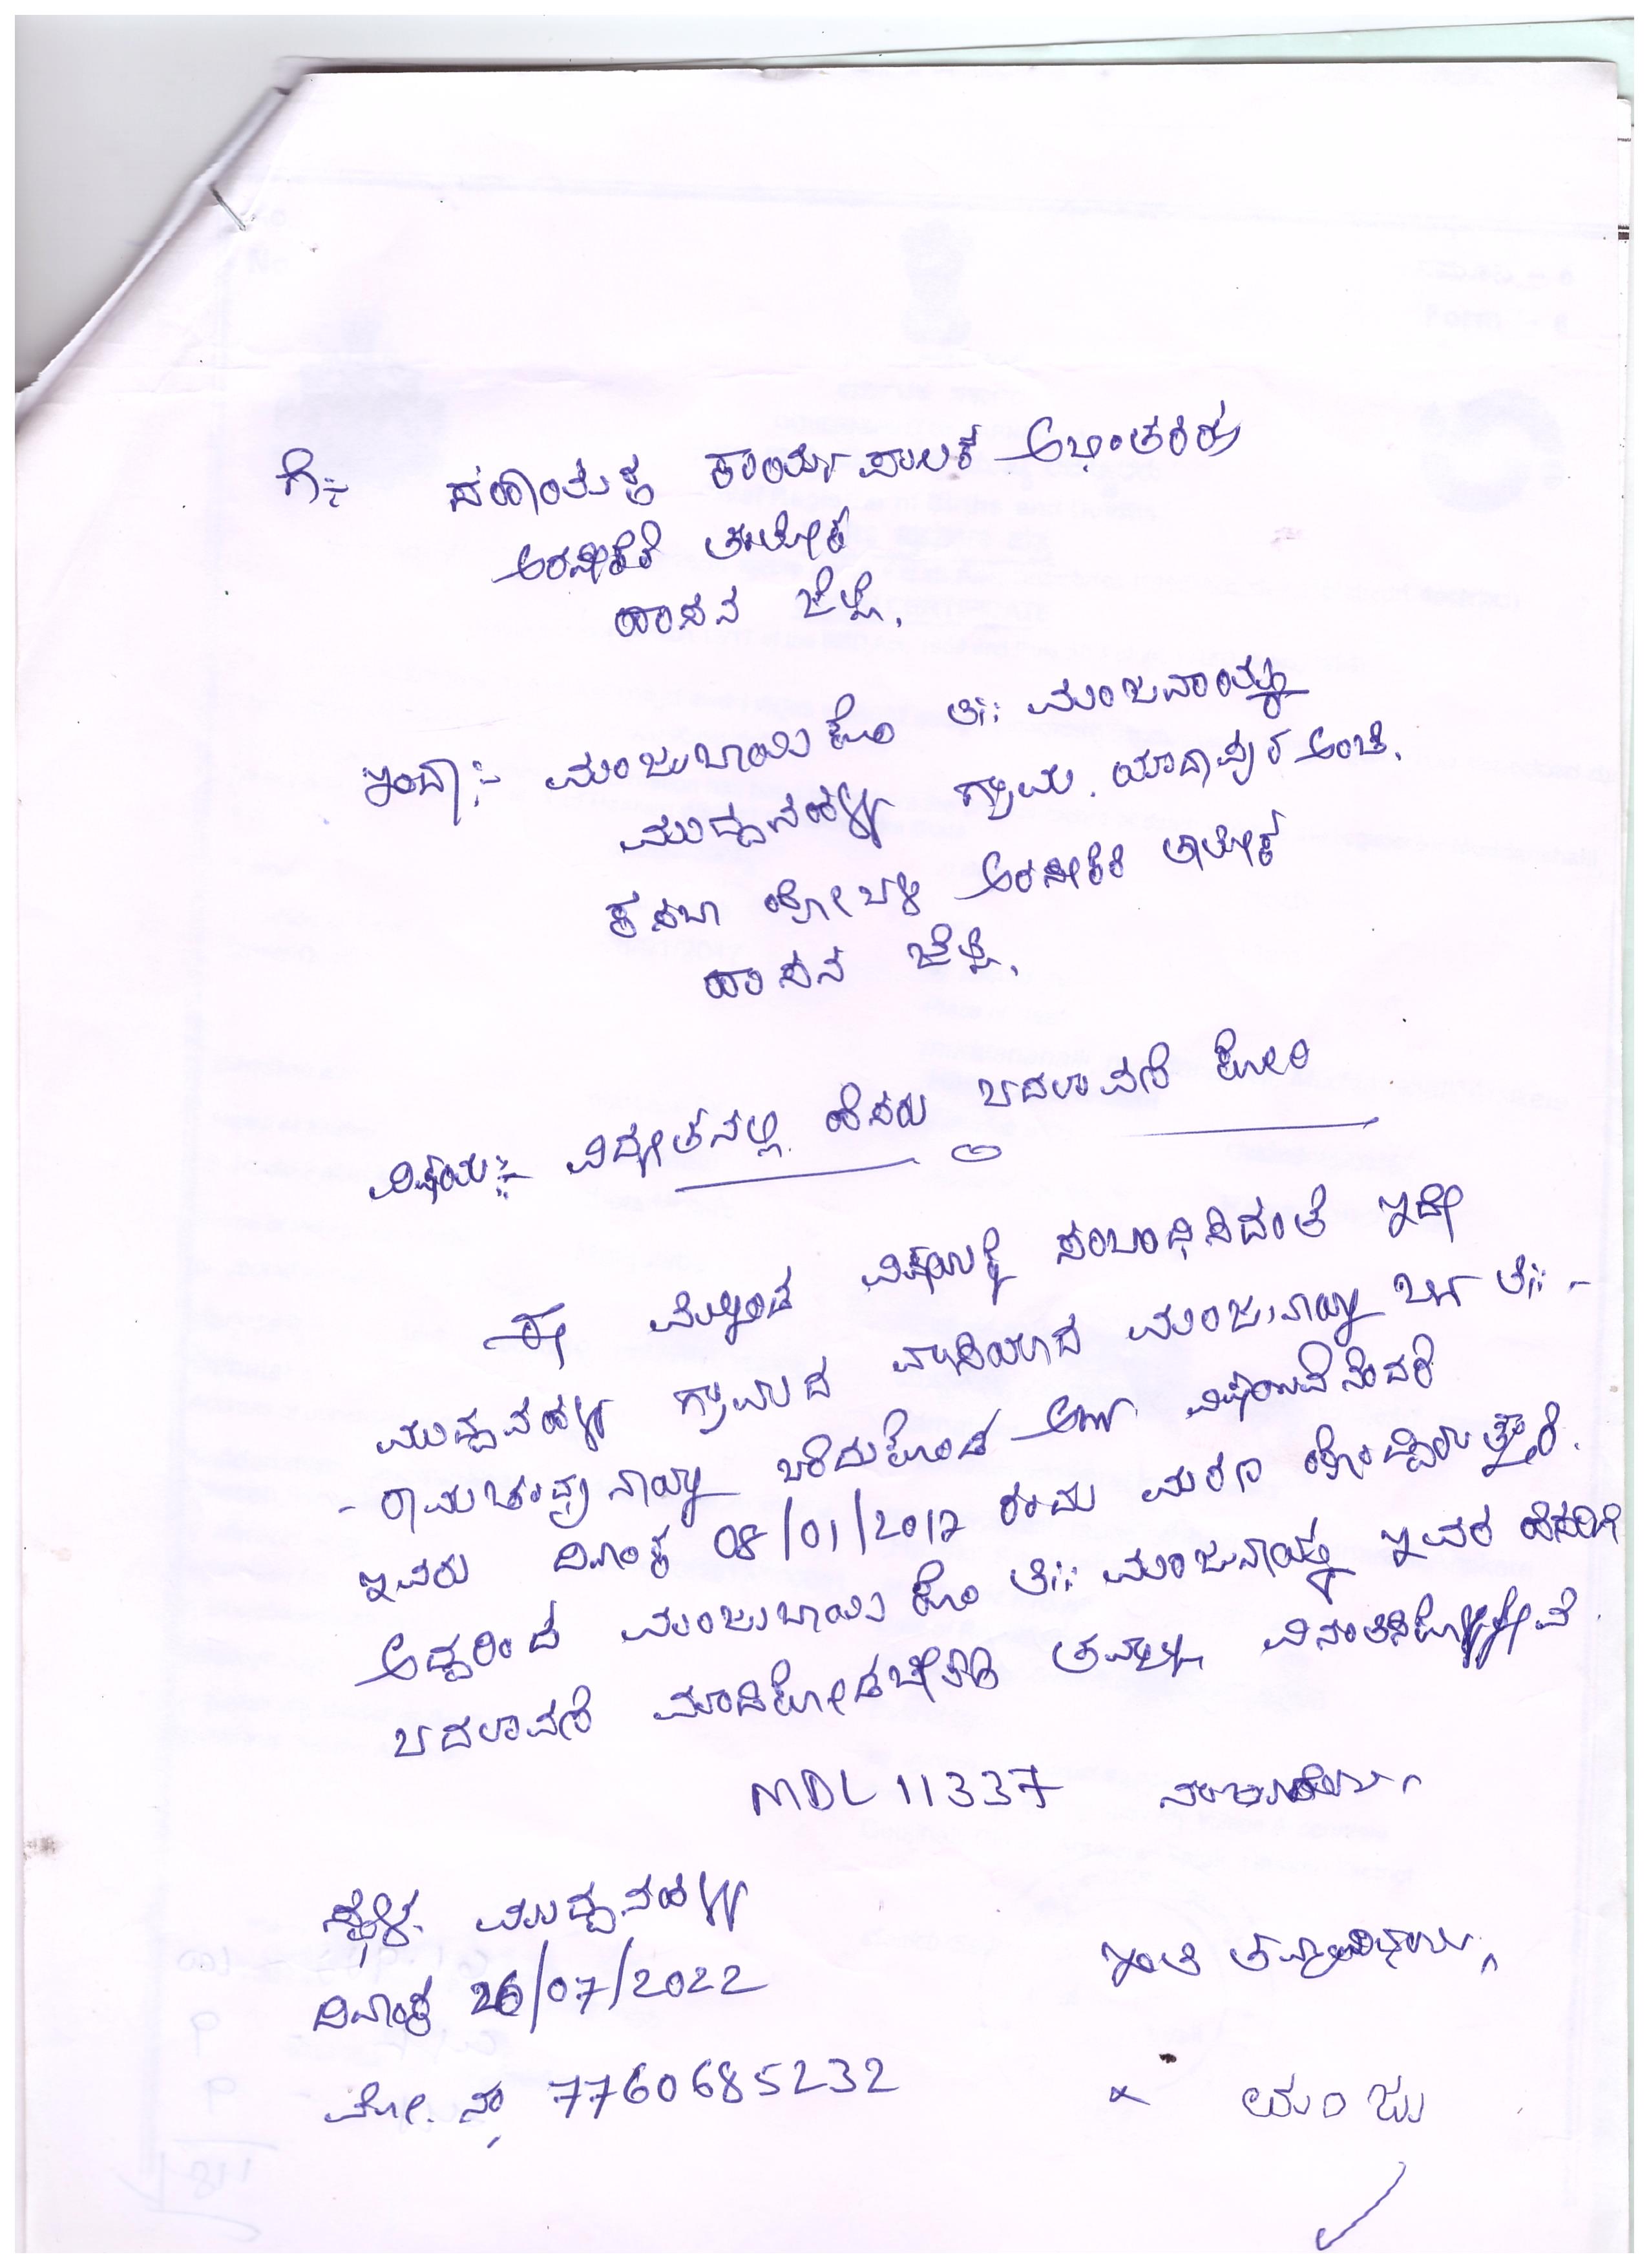 ಗೆ:- ಸಹಾಯಕ ಕಾರ್ಯಪಾಲಕ ಅಭಿಂತರರು
ಅರಸೀಕೆರೆ ತಾಲೋಕ
ಹಾಸನ ಜಿಲ್ಲೆ.
ಇಂದಾ:- ಮಂಜುಬಾಯಿ ಕೋಂ ಲೇ: ಮಂಜನಾಯ್ಕ
ಮುದ್ದನಹಳ್ಳಿ ಗ್ರಾಮ. ಯಾದಾಪುರ ಅಂಚೆ.
ಕಸಬಾ ಹೋಬಳಿ ಅರಸೀಕೆರೆ ತಾಲೋಕ
ಹಾಸನ ಜಿಲ್ಲೆ.
ವಿಷಯ:- ವಿದ್ಯೇತನಲ್ಲಿ ಹೆಸರು ಬದಲಾವಣೆ ಕೋರಿ
ಈ ಮೇಲ್ಕಂಡ ವಿಷಯಕ್ಕೆ ಸಂಬಂಧಿಸಿದಂತೆ ಇದೇ
ಮುದ್ದನಹಳ್ಳಿ ಗ್ರಾಮದ ವಾಸಿಯಾದ ಮಂಜುನಾಯ್ಕ ಬಿನ್ ಲೇ: -
- ರಾಮಚಂದ್ರನಾಯ್ಕ ಬರೆದುಕೊಂಡ ಅರ್ಜಿ ವಿಷಯವೆನೆಂದರೆ
ಇವರು ದಿನಾಂಕ 08/01/2017 ರಂದು ಮರಣ ಹೊಂದ್ದಿರುತ್ತಾರೆ.
ಆದ್ದರಿಂದ ಮಂಜುಬಾಯಿ ಕೋಂ ಲೇ: ಮಂಜುನಾಯ್ಕ ಇವರ ಹೆಸರಿಗೆ
ಬದಲಾವಣೆ ಮಾಡಿಕೊಡಬೇಕಾಗಿ ತಮ್ಮಲ್ಲಿ ವಿನಂತಿಸಿಕೊಳ್ಳುತ್ತೇವೆ
MDL 11337
ಸ್ಥಳ: ಮುದ್ದನಹಳ್ಳಿ
ಇಂತಿ ತಮ್ಮ ವಿಶ್ವಾಸಿ
ದಿನಾಂಕ 26/07/2022
ಮೊ. ನಂ 7760685232
× ಮಂಜು